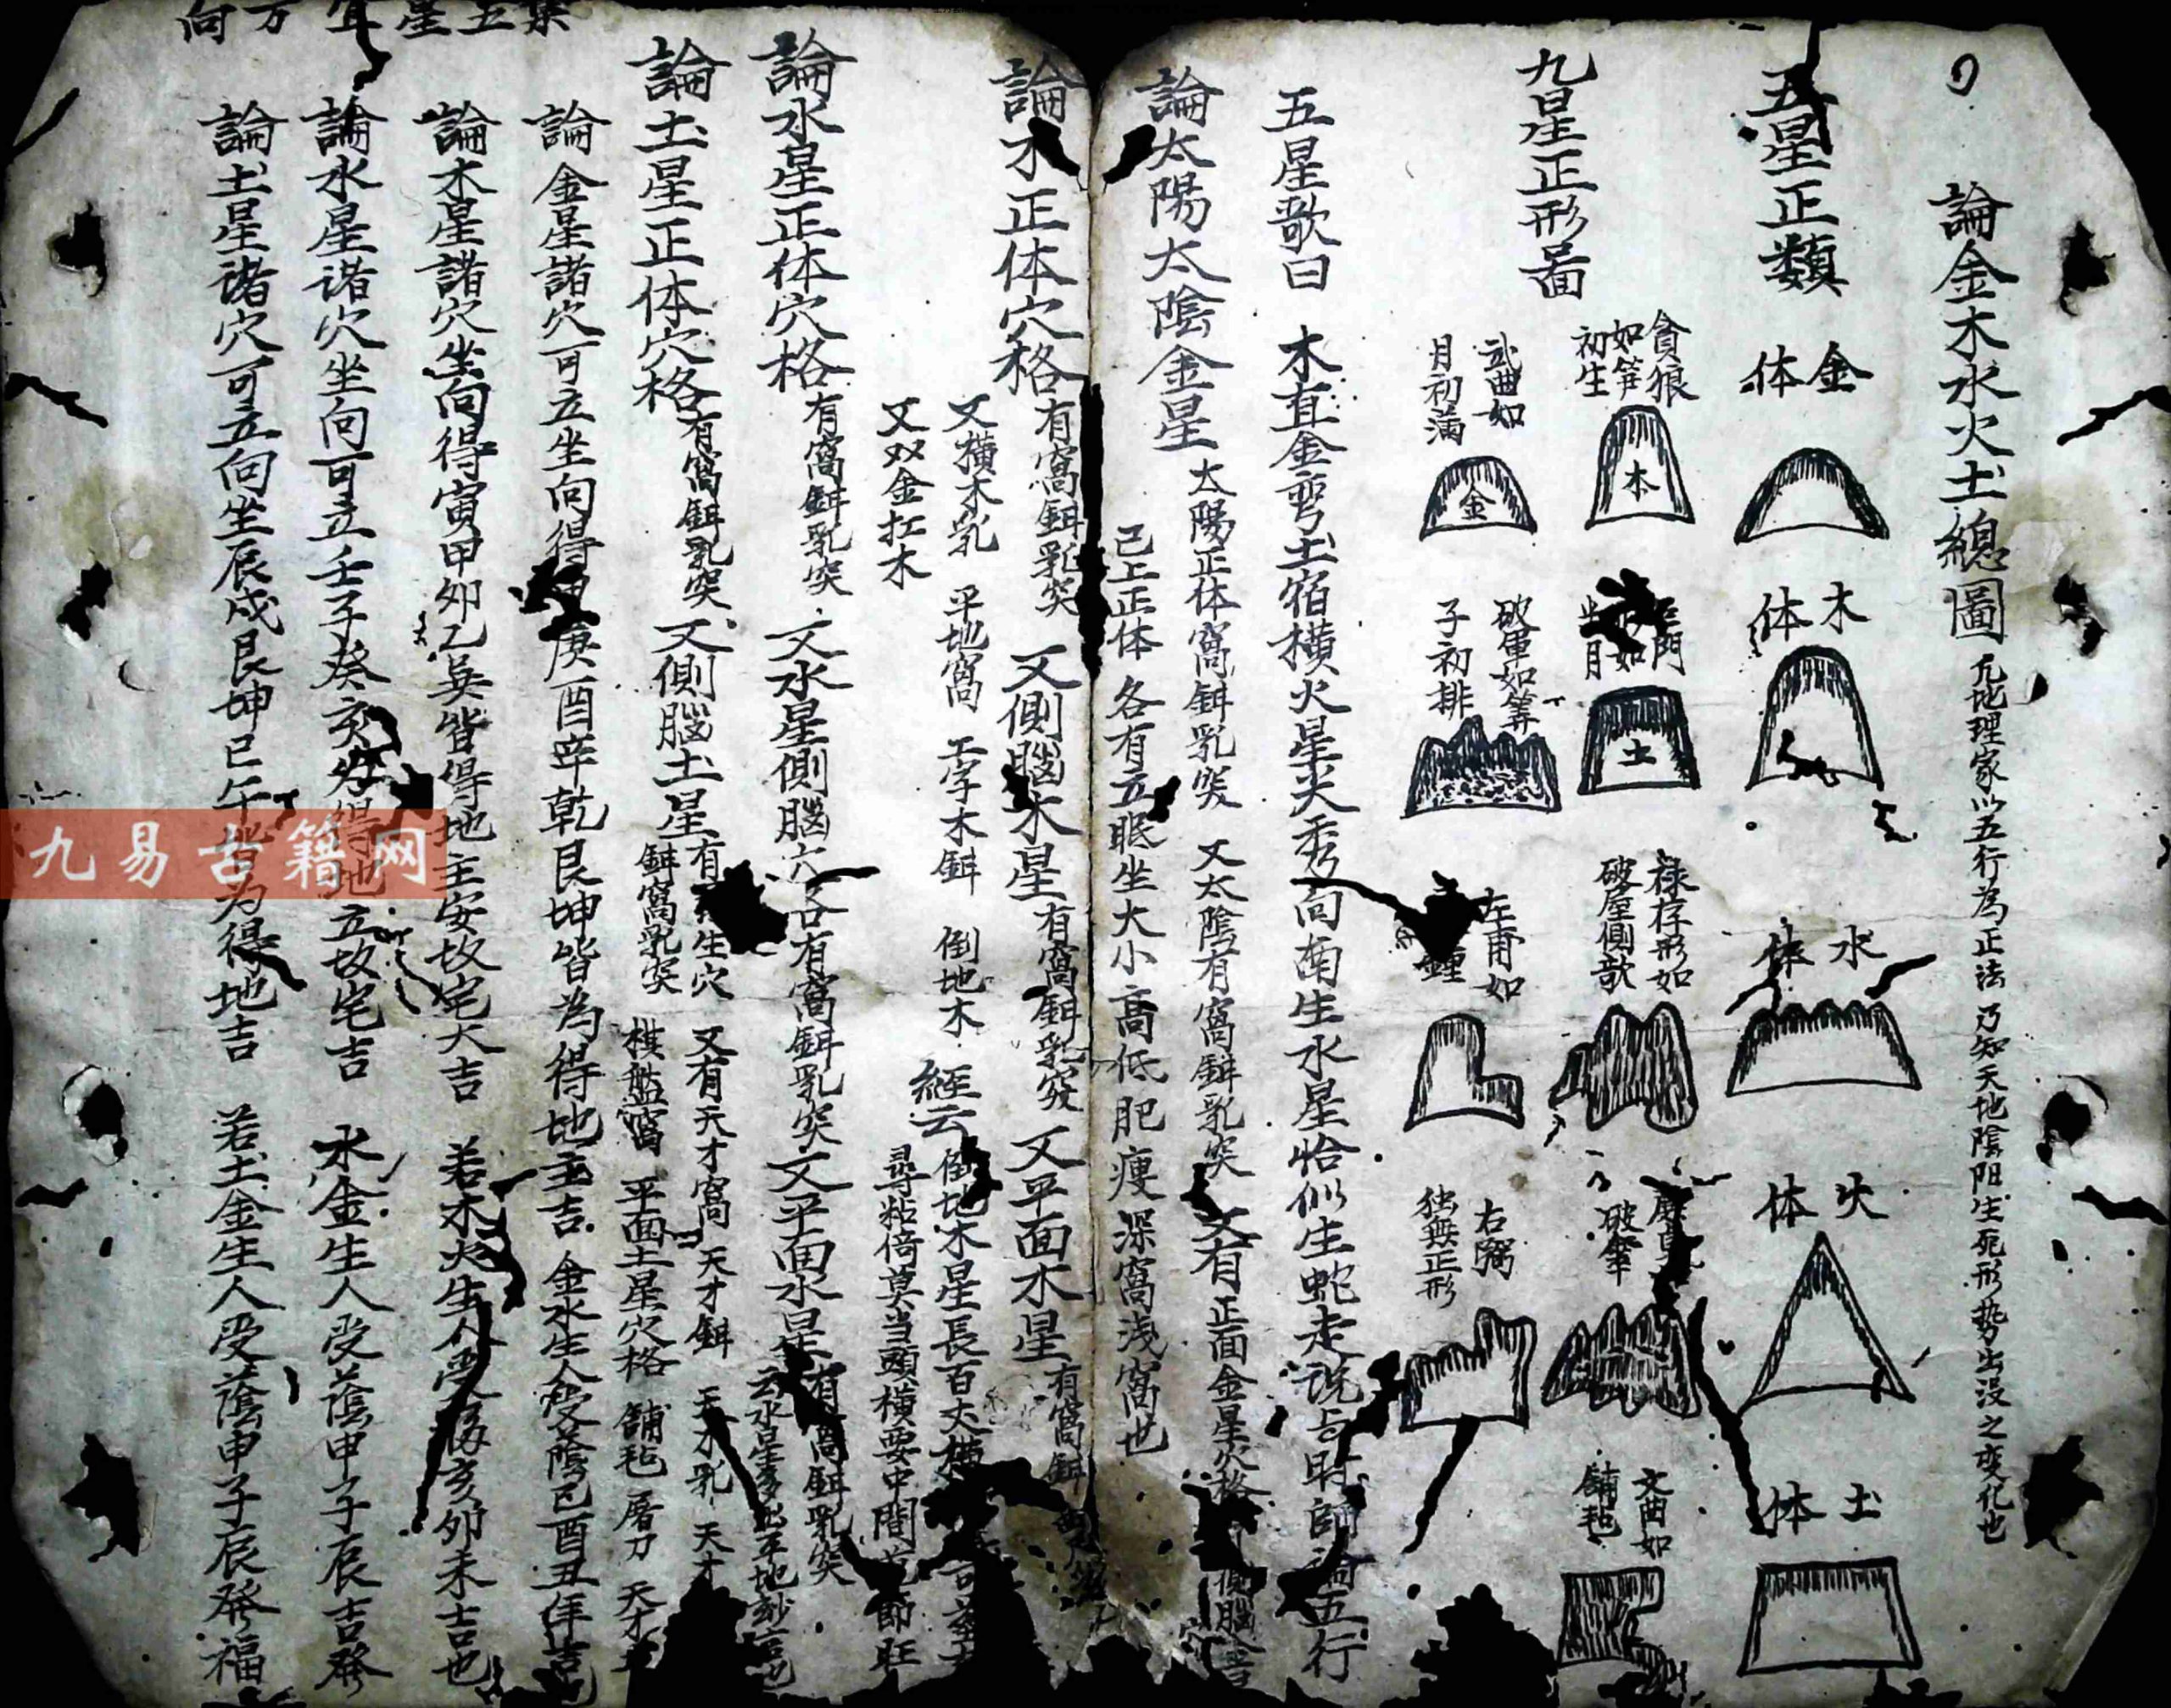 論金木水火土總圖
凢地理家以五行為正法乃知天地陰阳生死形势出没之变化也
五星正類
金体
木体
水体
火体
土体
九星正形啚
貪狼如笋初生
木
門如月
土
禄存形如破屋側歌
破傘
文曲如鋪毡
武曲如月初满
金
破军如筭子初排
左甫如鍾
右弼独無正形
五星歌曰 木直金弯土宿横火星尖秀向南生水星恰似生蛇走説与時師論五行
論太陽太陰金星
太陽正体窩鉗乳突 又太陰有窩鉗乳突 又有正面金星穴格 側腦金
已上正体 各有立眠坐大小高低肥瘦深窩浅窩也
論木正体穴格 有窩鉗乳突 又側腦木星 有窩鉗乳突 又平面木星 有窩鉗
又横木乳 平地窩 工字木鉗 倒地木 經云 倒地木星長百丈横
又双金扛木 尋粘倚莫当頭横要中間 節旺
論水星正体穴格 有窩鉗乳突 又水星側腦穴 各有窩鉗乳突 又平面水星 有窩鉗乳突
云水星多出平地妙言也
論土星正体穴格 有窩鉗乳突 又側腦土星 有 生穴 鉗窩乳突
又有天才窩 天才鉗 天才乳 天才
棋盤窩 平面土星穴格 鋪毡 屠刀 天才
論金星諸穴可立坐向得 庚酉辛乾艮坤皆為得地主吉 金水生人受蔭巳酉丑年吉
論木星諸穴坐向得寅甲夘乙巽皆得地主安坟宅大吉 若木火生人受 亥夘未吉也
論水星诸穴坐向可立壬子癸亥 得地立坟宅吉 水金生人受蔭申子辰吉發
論土星诸穴可立向坐辰戍艮坤巳午皆为得地吉 若土金生人受蔭申子辰發福
向方宜星五集
九易古籍网